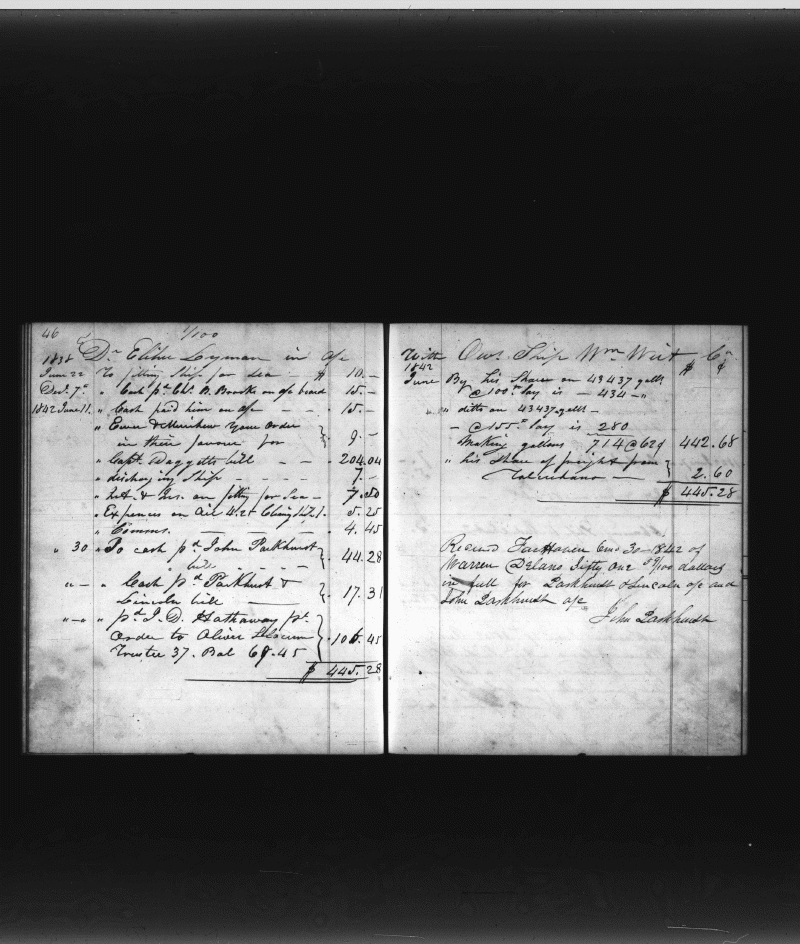 46
1/100
1838 Dr Elihu Lyman in a/c
June 22 To fitting Ship for Sea $ 10.–
Decr. 7th " Cash pd Chs. B. Brooks on a/c board 15.–
1842 June 11. " Cash paid him on a/c – – 15.–
" your Order
in their favour for 9.–
" Capt. Daggetts bill – – 204.04
" discharging Ship – – – 7.–
" Int. & Ins. on fitting for Sea – 7.50
" Expences on Oil 5.25
" Comms. 4.45
" 30 " To cash pd John Parkhurst
" bill 44.28
" – " Cash pd Parkhurst &
Lincoln bill 17.31
" – " pd J. D. Hathaway pr.
Order to Oliver
Trustee 37. Bal 69.45 106.45
$ 445.28
With Owrs. Ship Wm Wirt Cr
1842 $ ¢
June By his Share on 43437 galls
@ 100th lay is – 434 – "
" ditto on 43437 galls –
– @ 155th lay is 280
Making gallons 714 @ 62¢ 442.68
" his Share of freight from
Talcahuano – 2.60
$ 445.28
Received FairHaven 6mo 30–1842 of
Warren Delano Fifty One /100 dollars
in full for Parkhurst & Lincoln a/c and
John Parkhurst a/c
John Parkhurst